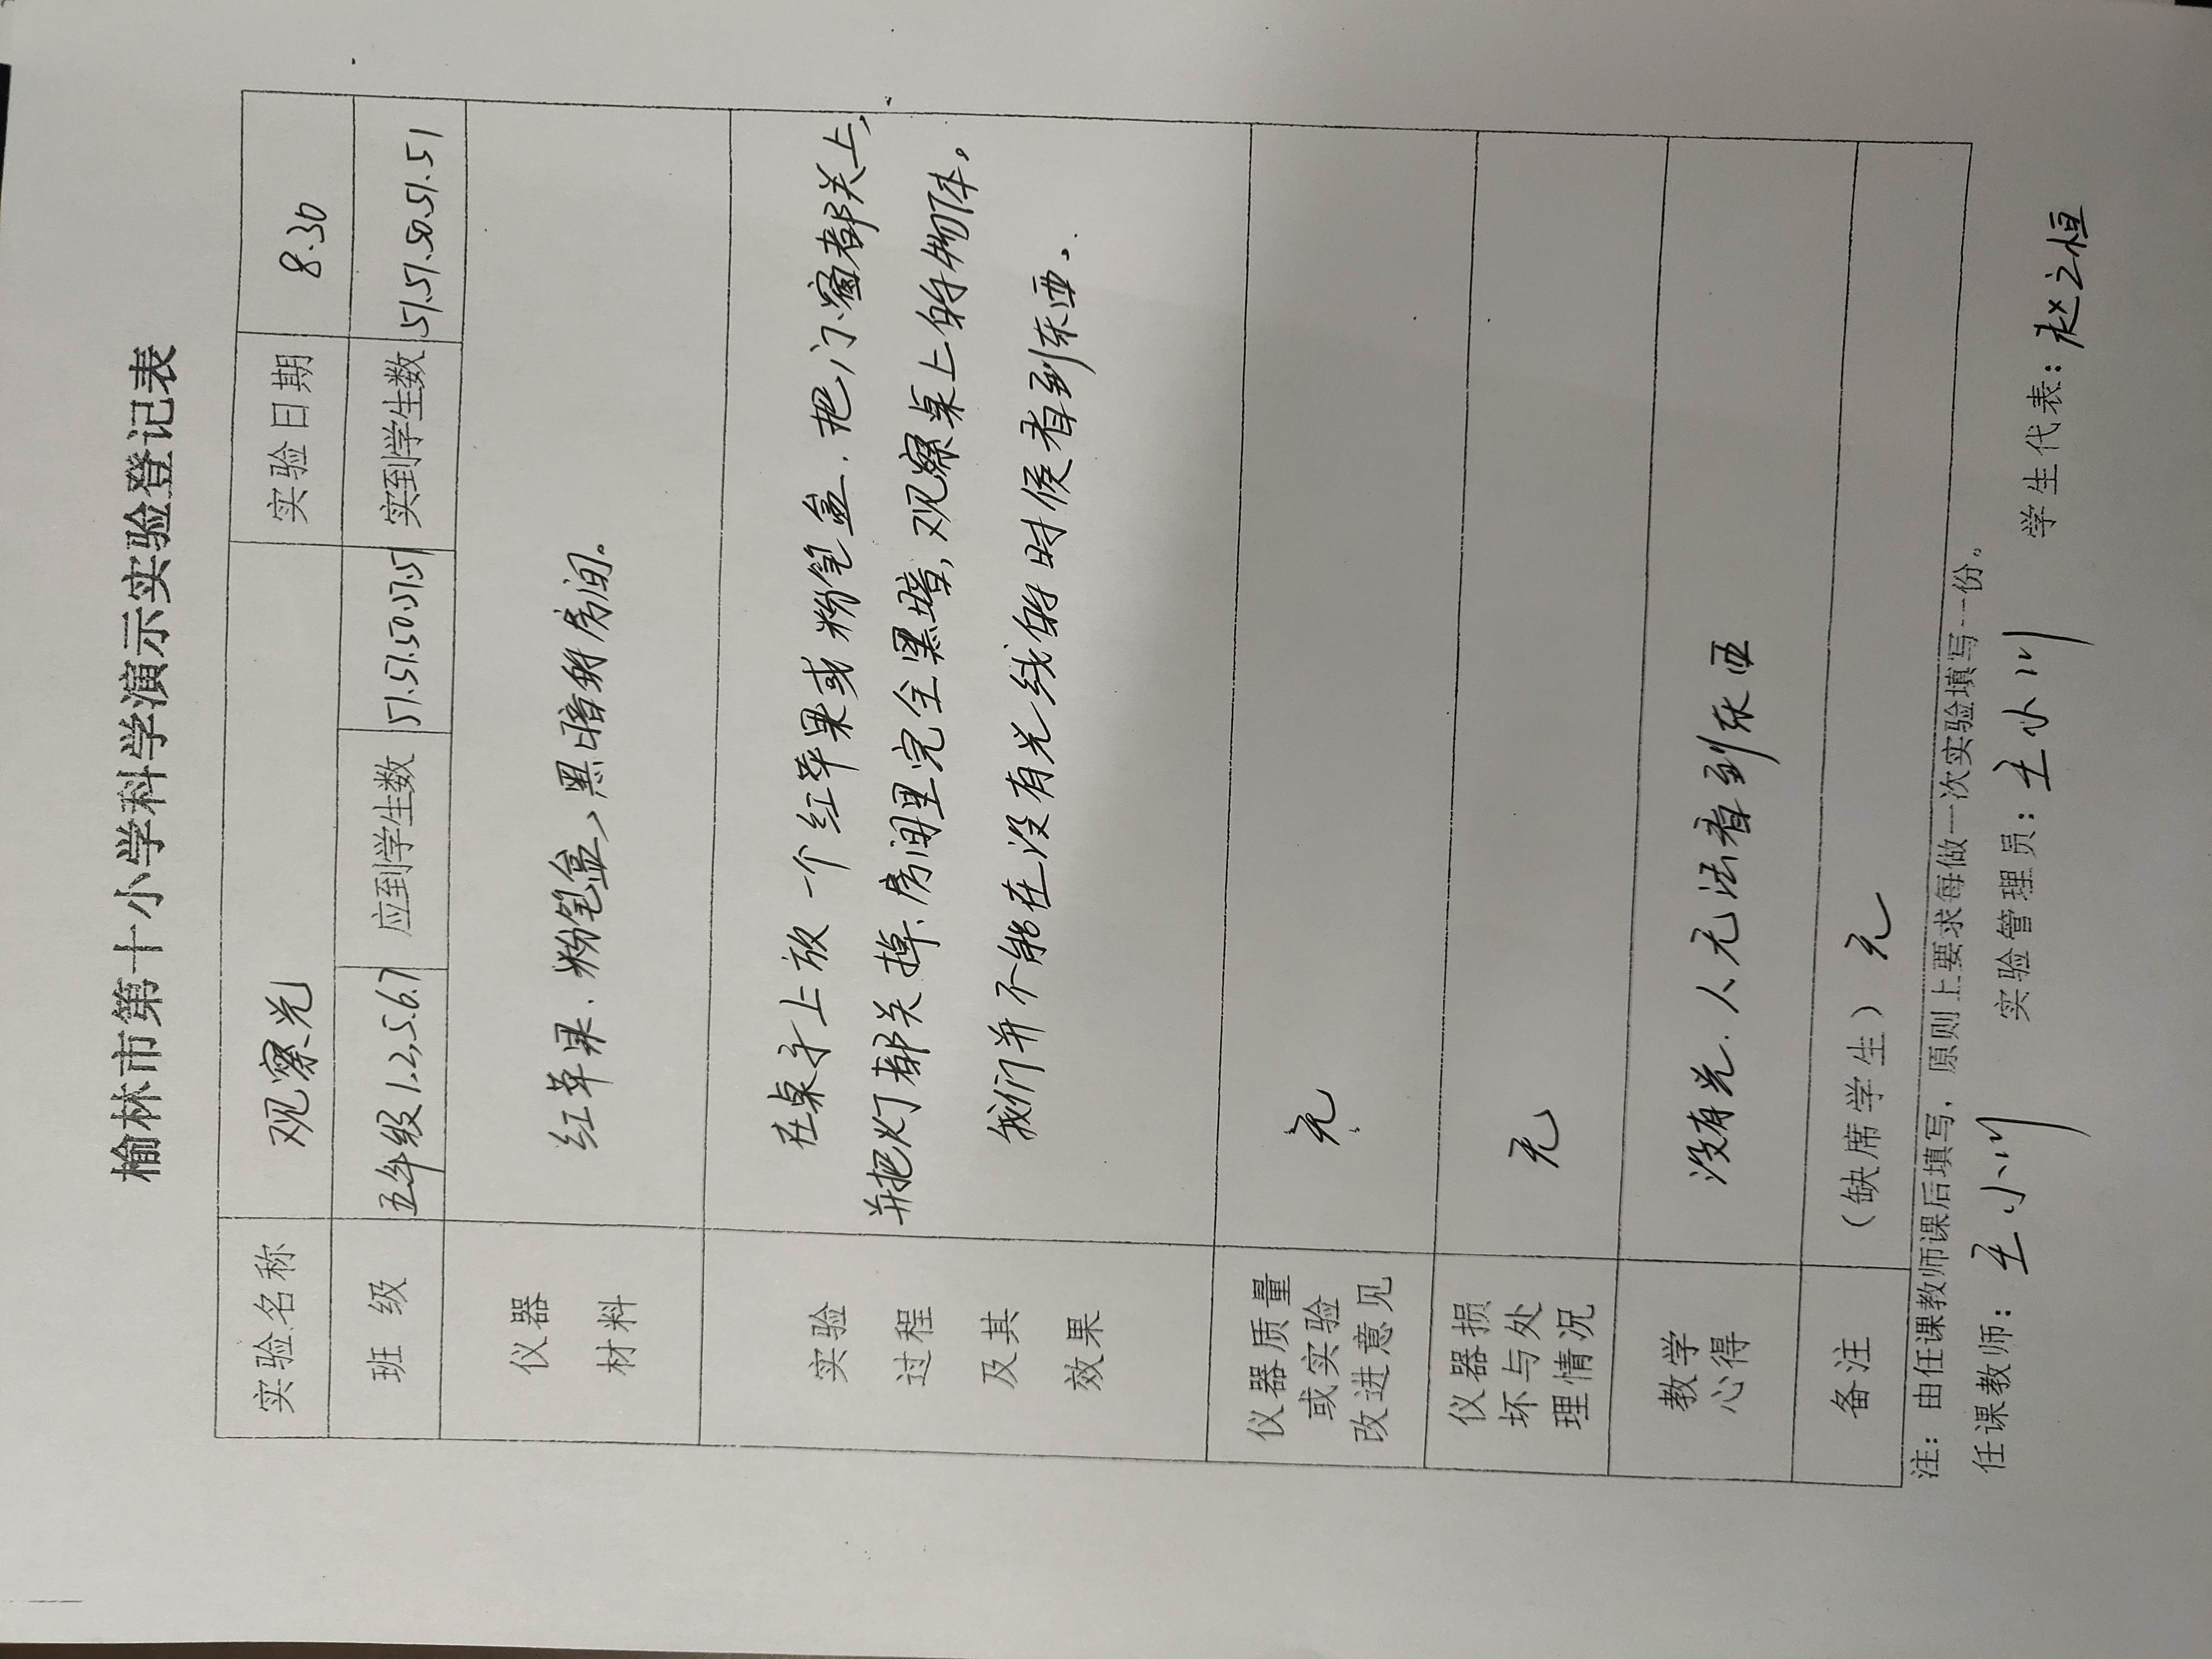 榆林市第十小学科学演示实验登记表
实验名称 观察光 实验日期 8.30
班 级 五年级1.2.5.6.7 应到学生数 51.51.50.51.51 实到学生数 51.51.50.51.51
仪器 红苹果.粉笔盒、黑暗的房间。
材料
实验 在桌子上放一个红苹果或粉笔盒.把门窗都关上,
过程 并把灯都关掉.房间里完全黑暗,观察桌上的物体。
及其 我们并不能在没有光线的时候看到东西。
效果
仪器质量 无
或实验
改进意见
仪器损 无
坏与处
理情况
教学 没有光.人无法看到东西
心得
备注 (缺席学生) 无
注:由任课教师课后填写,原则上要求每做一次实验填写一份。
任课教师:王小川 实验管理员:王小川 学生代表:赵之恒